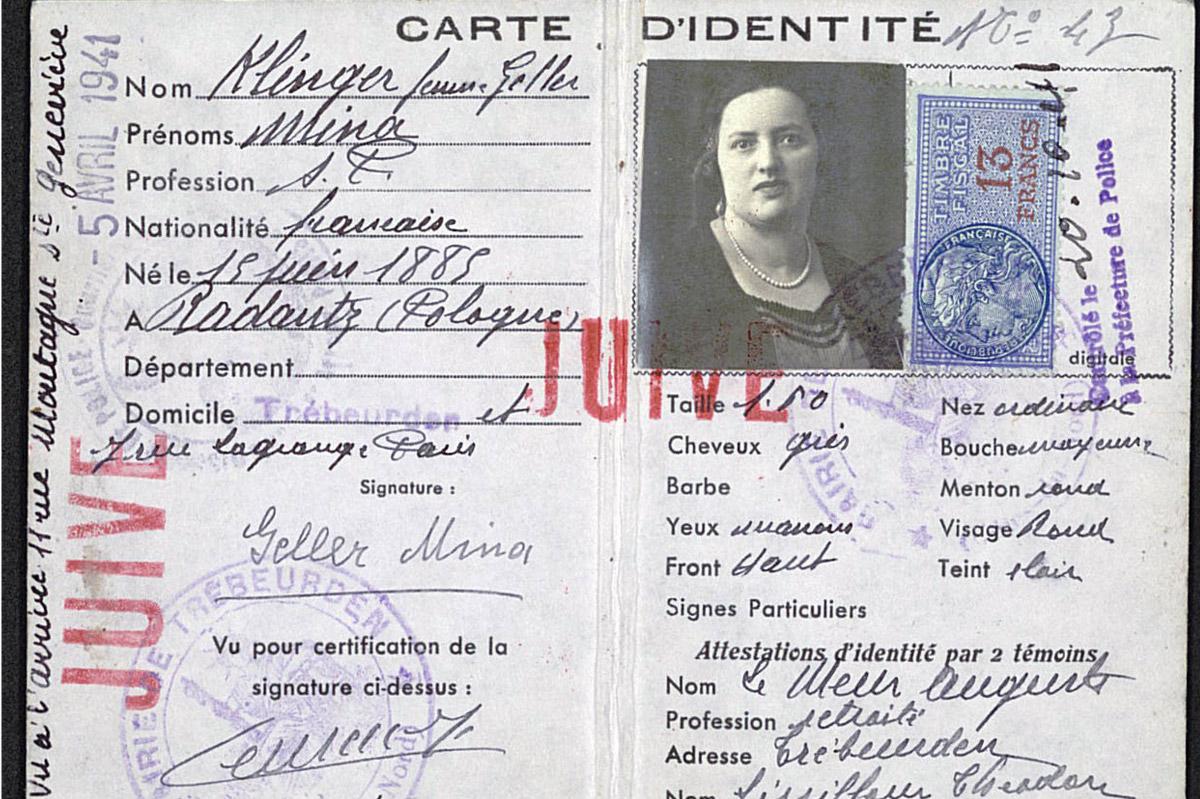 CARTE D'IDENTITÉ N° 43
Nom Klinger femme Geller
Prénoms Mina
Profession S. P.
Nationalité française
Né le 15 juin 1885
A Radautz (Pologne)
Département
Domicile Trébeurden et
7 rue Lagrange Paris
Signature :
Geller Mina
Vu pour certification de la
signature ci-dessus :
MAIRIE DE TRÉBEURDEN
Nord)
JUIVE
JUIVE
Vu à l'arrivée 11 rue Montagne Ste Geneviève
5 AVRIL 1941
TIMBRE FISCAL
13 FRANCS
FRANÇAISE
Contrôlé le 20.10.
à la Préfecture de Police
digitale
Taille 1.50
Cheveux gris
Barbe
Yeux marrons
Front Haut
Nez ordinaire
Bouche moyenne
Menton rond
Visage Rond
Teint clair
Signes Particuliers
Attestations d'identité par 2 témoins
Nom Le Meur Auguste
Profession retraité
Adresse Trébeurden
Nom Théodore